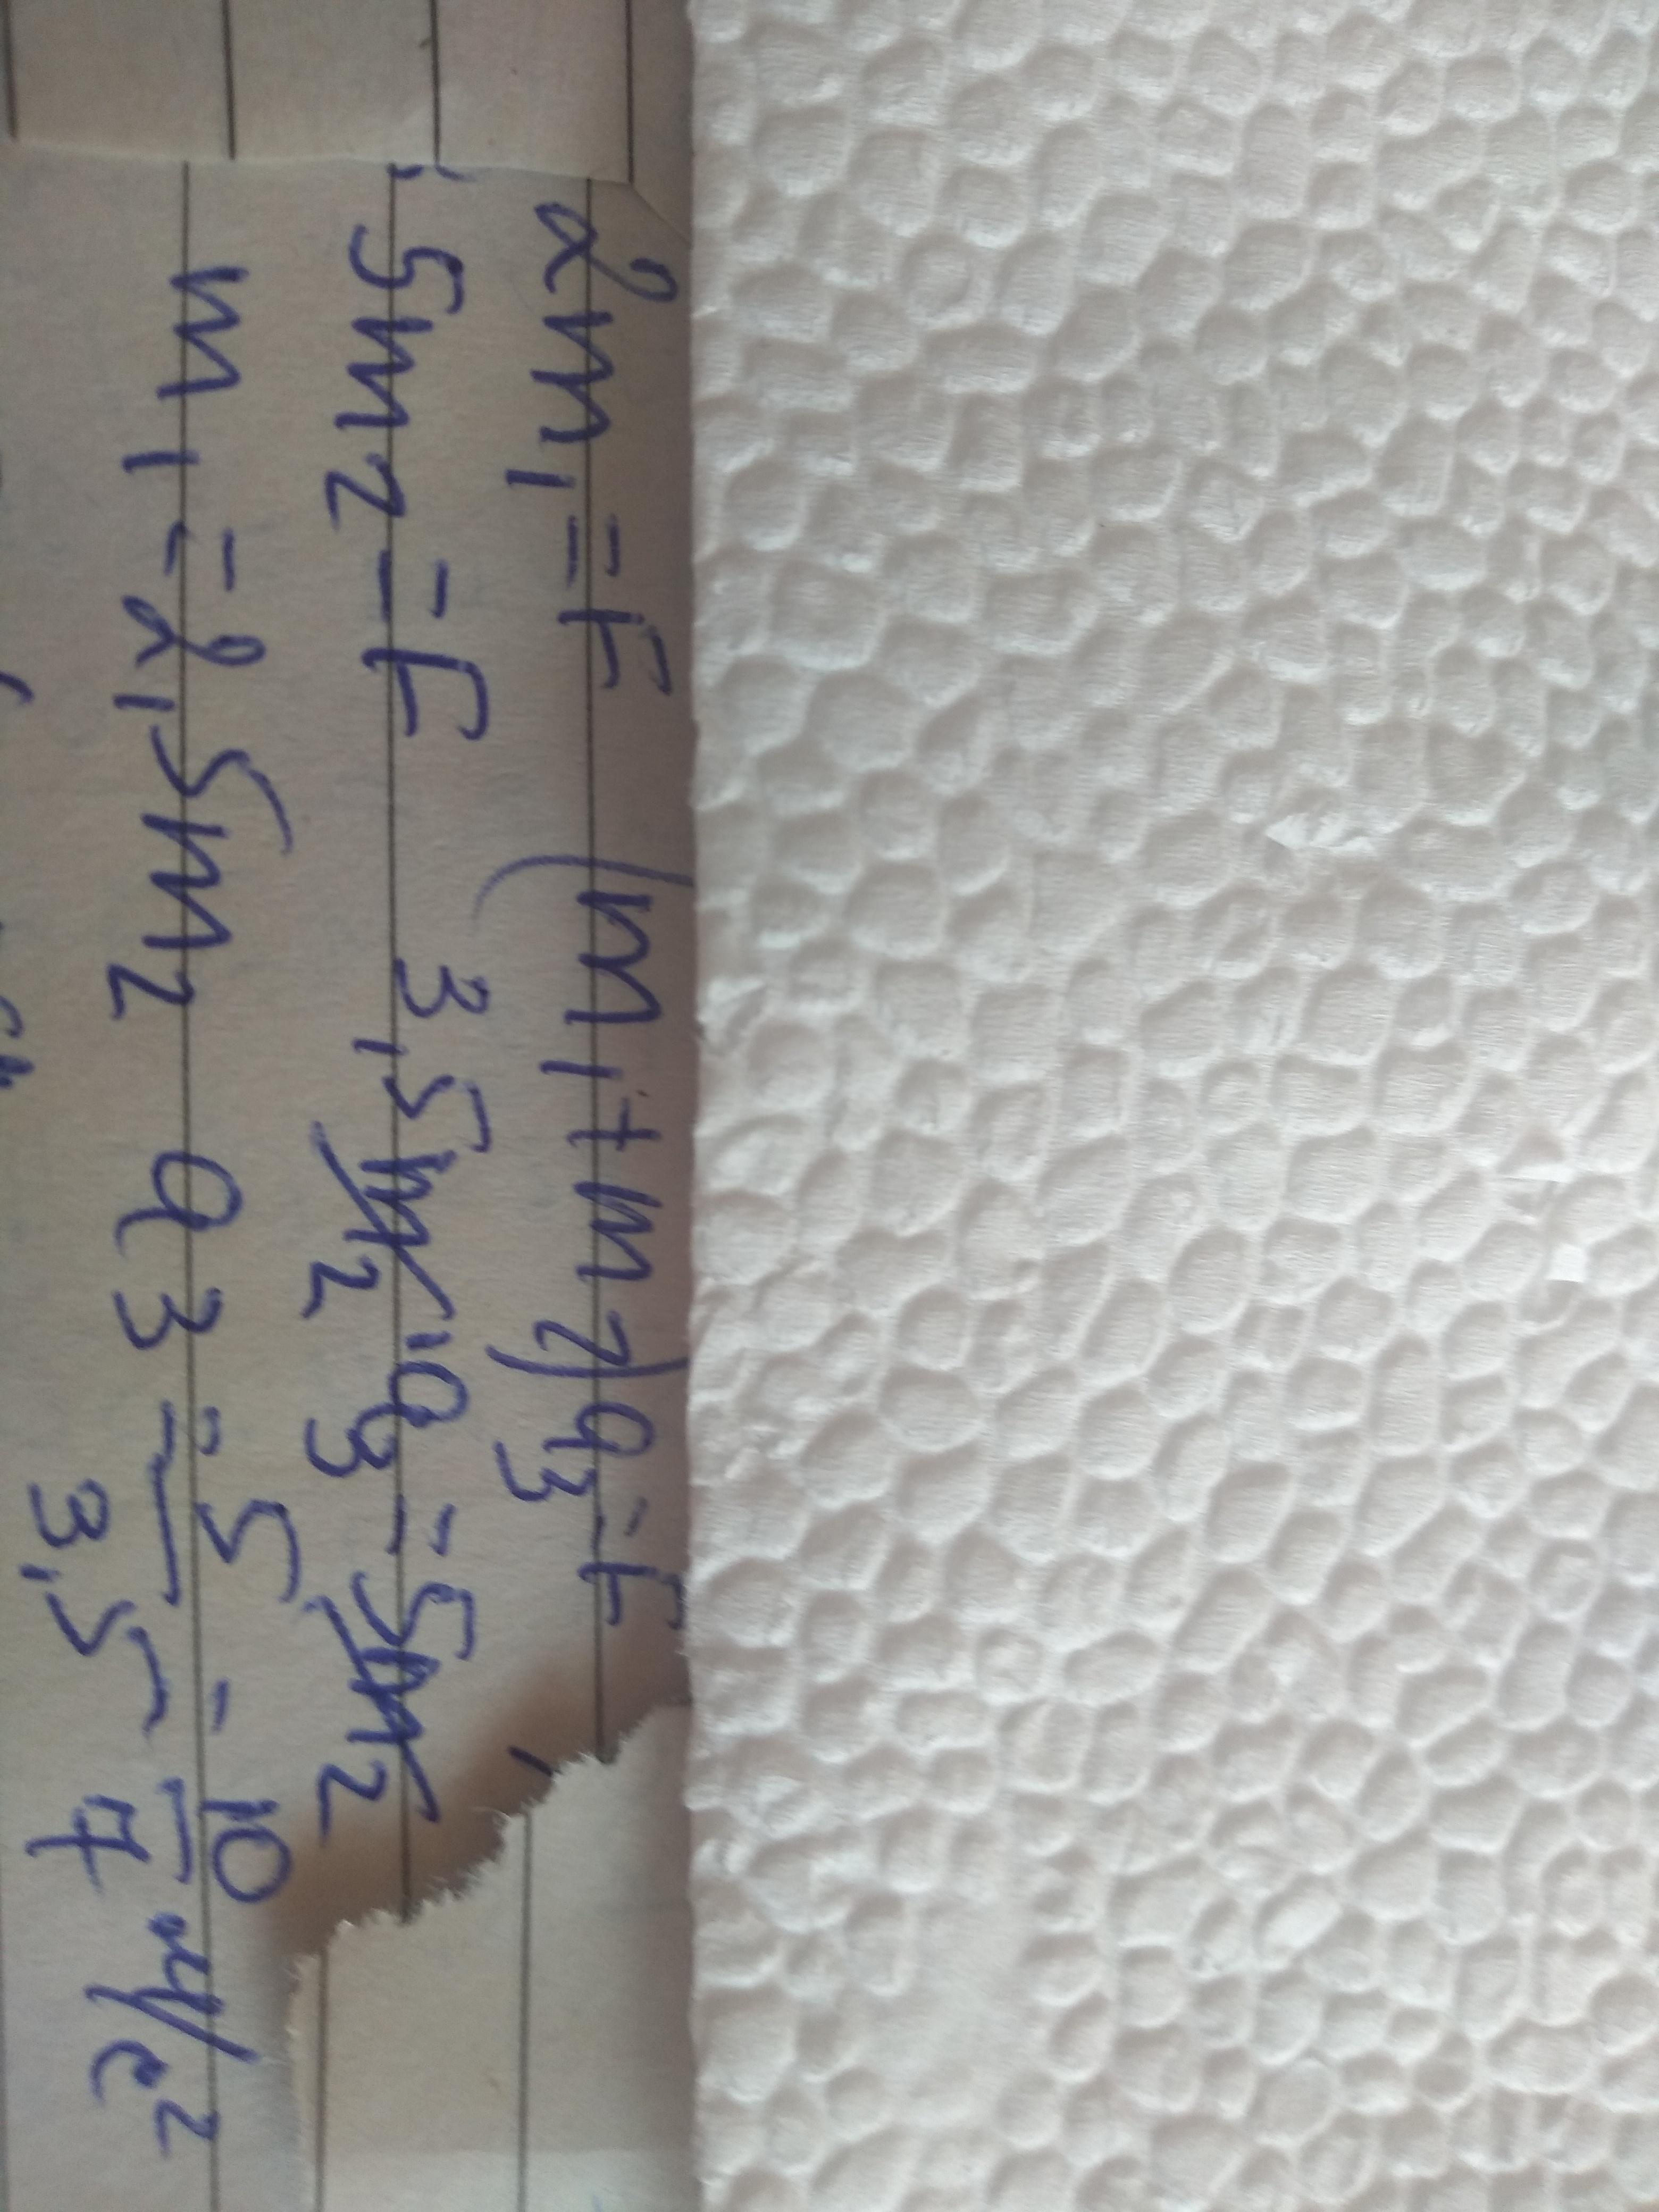 2m₁ = F (m₁ + m₂) a₃ = F
5m₂ = F 3,5m₂ · a₃ = 5m₂
m₁ = 2,5m₂ a₃ = 5/3,5 = 10/7 м/с²